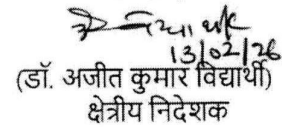 13/02/26
(डॉ. अजीत कुमार विद्यार्थी)
क्षेत्रीय निदेशक